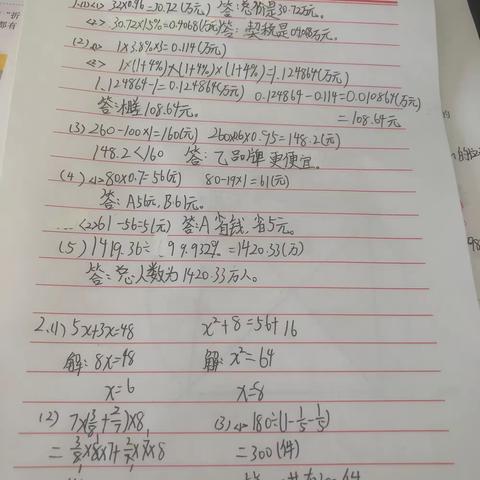 1.(1)<1> 32×0.96=30.72(万元) 答:总价是30.72万元。
<2> 30.72×1.5%=0.4608(万元) 答: 契税是4608万元。
(2)<1> 1×3.8%×3=0.114(万元)
<2> 1×(1+4%)×(1+4%)×(1+4%)=1.124864(万元)
1.124864-1=0.124864(万元) 0.124864-0.114=0.010864(万元)
答:相差108.64元。 =108.64元
(3)260-100×1=160(元) 260×0.6×0.95=148.2(元)
148.2<160 答: 乙品牌更便宜。
(4)<1>80×0.7=56(元) 80-19×1=61(元)
答: A56元, B61元。
<2>61-56=5(元) 答:A省钱,省5元。
(5)1419.36÷99.932%=1420.33(万)
答: 总人数为1420.33万人。
2.(1) 5x+3x=48 x²+8=56+16
解: 8x=48 解: x²=64
x=6 x=8
(2) 7×(3/8+2/7)×8 (3)<1>180÷(1-1/5-1/5)
=3/8×8×7+2/7×7×8 =300(件)